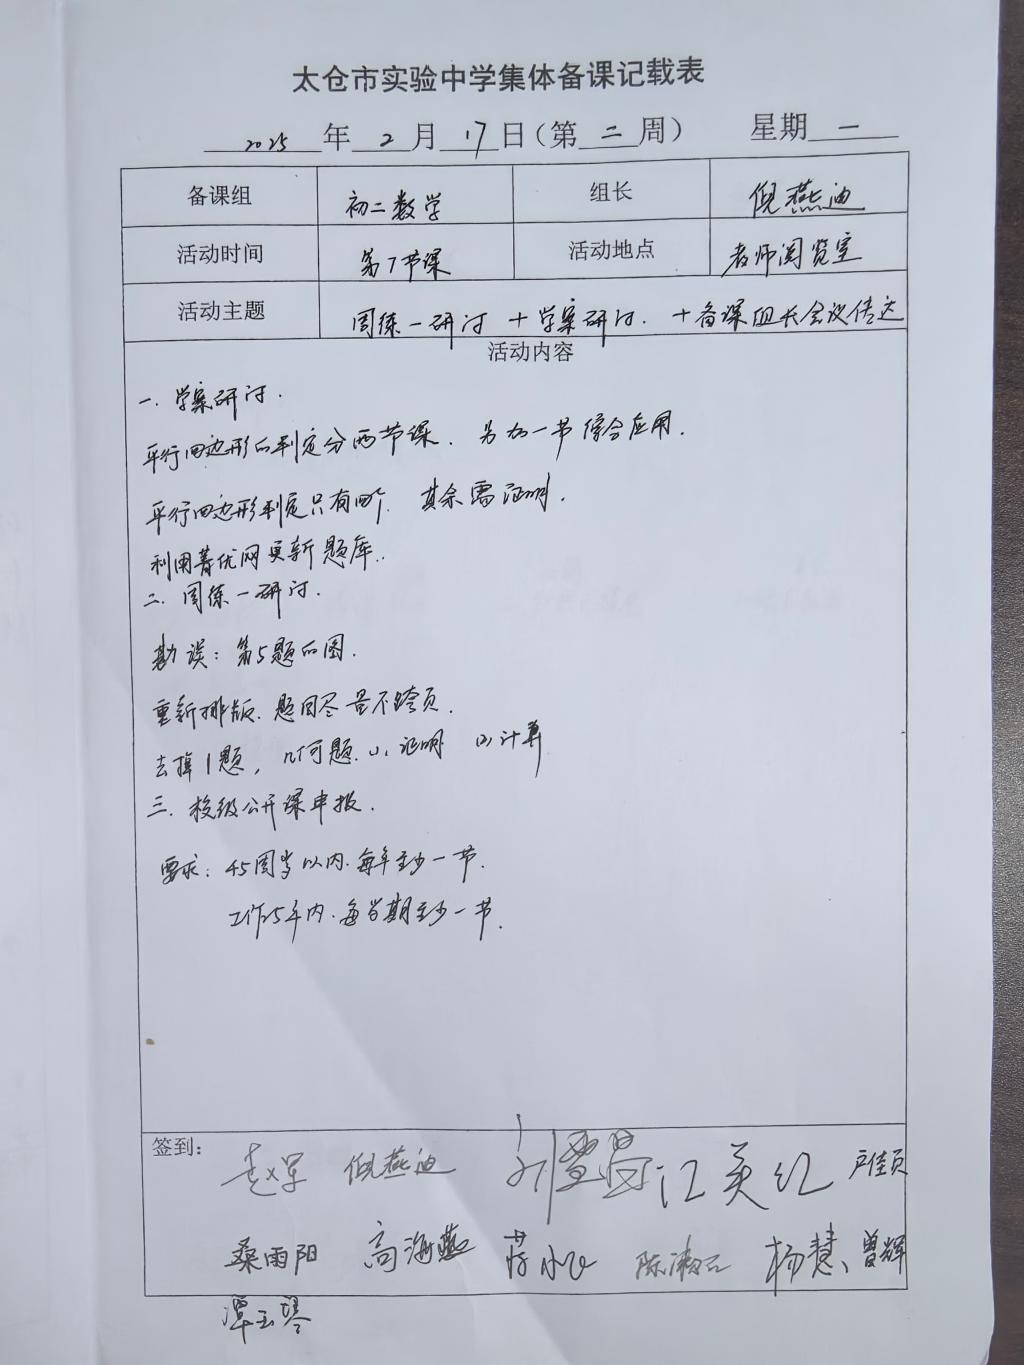 太仓市实验中学集体备课记载表
2025年2月17日(第二周) 星期一
备课组 初二数学 组长 倪燕迪
活动时间 第7节课 活动地点 老师阅览室
活动主题 周练一研讨+学案研讨.+备课组长会议传达
活动内容
一.学案研讨.
平行四边形的判定分两节课、另加一节综合应用.
平行四边形判定只有四个 其余需证明.
利用菁优网更新题库.
二.周练一研讨.
勘误:第5题的图.
重新排版.题目尽量不跨页.
去掉1题,几何题.(1)证明 (2)计算
三.校级公开课申报.
要求:45周岁以内.每年至少一节.
工作25年内.每学期至少一节.
签到:
倪燕迪 江美红
桑雨阳 高海燕 杨慧、曾辉
谭玉琴